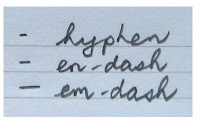 - hyphen
– en-dash
— em-dash